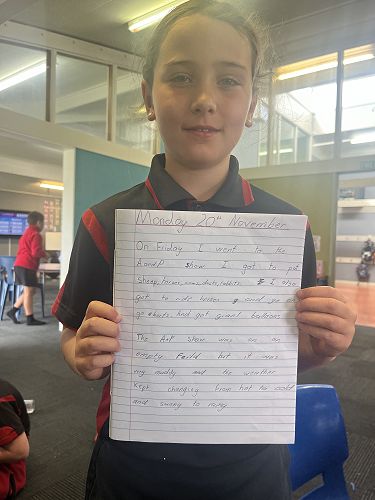 Monday 20th November
On Friday I went to the
AandP show I got to pat
Sheep, horses, cows, ducks, rabbits. I also
got to ride horses and go on
go carts. And got giant balloons
The A+P show was on an
empty feild but it was
my muddy and the weather
kept changing from hot to cold
and swany to rainy.